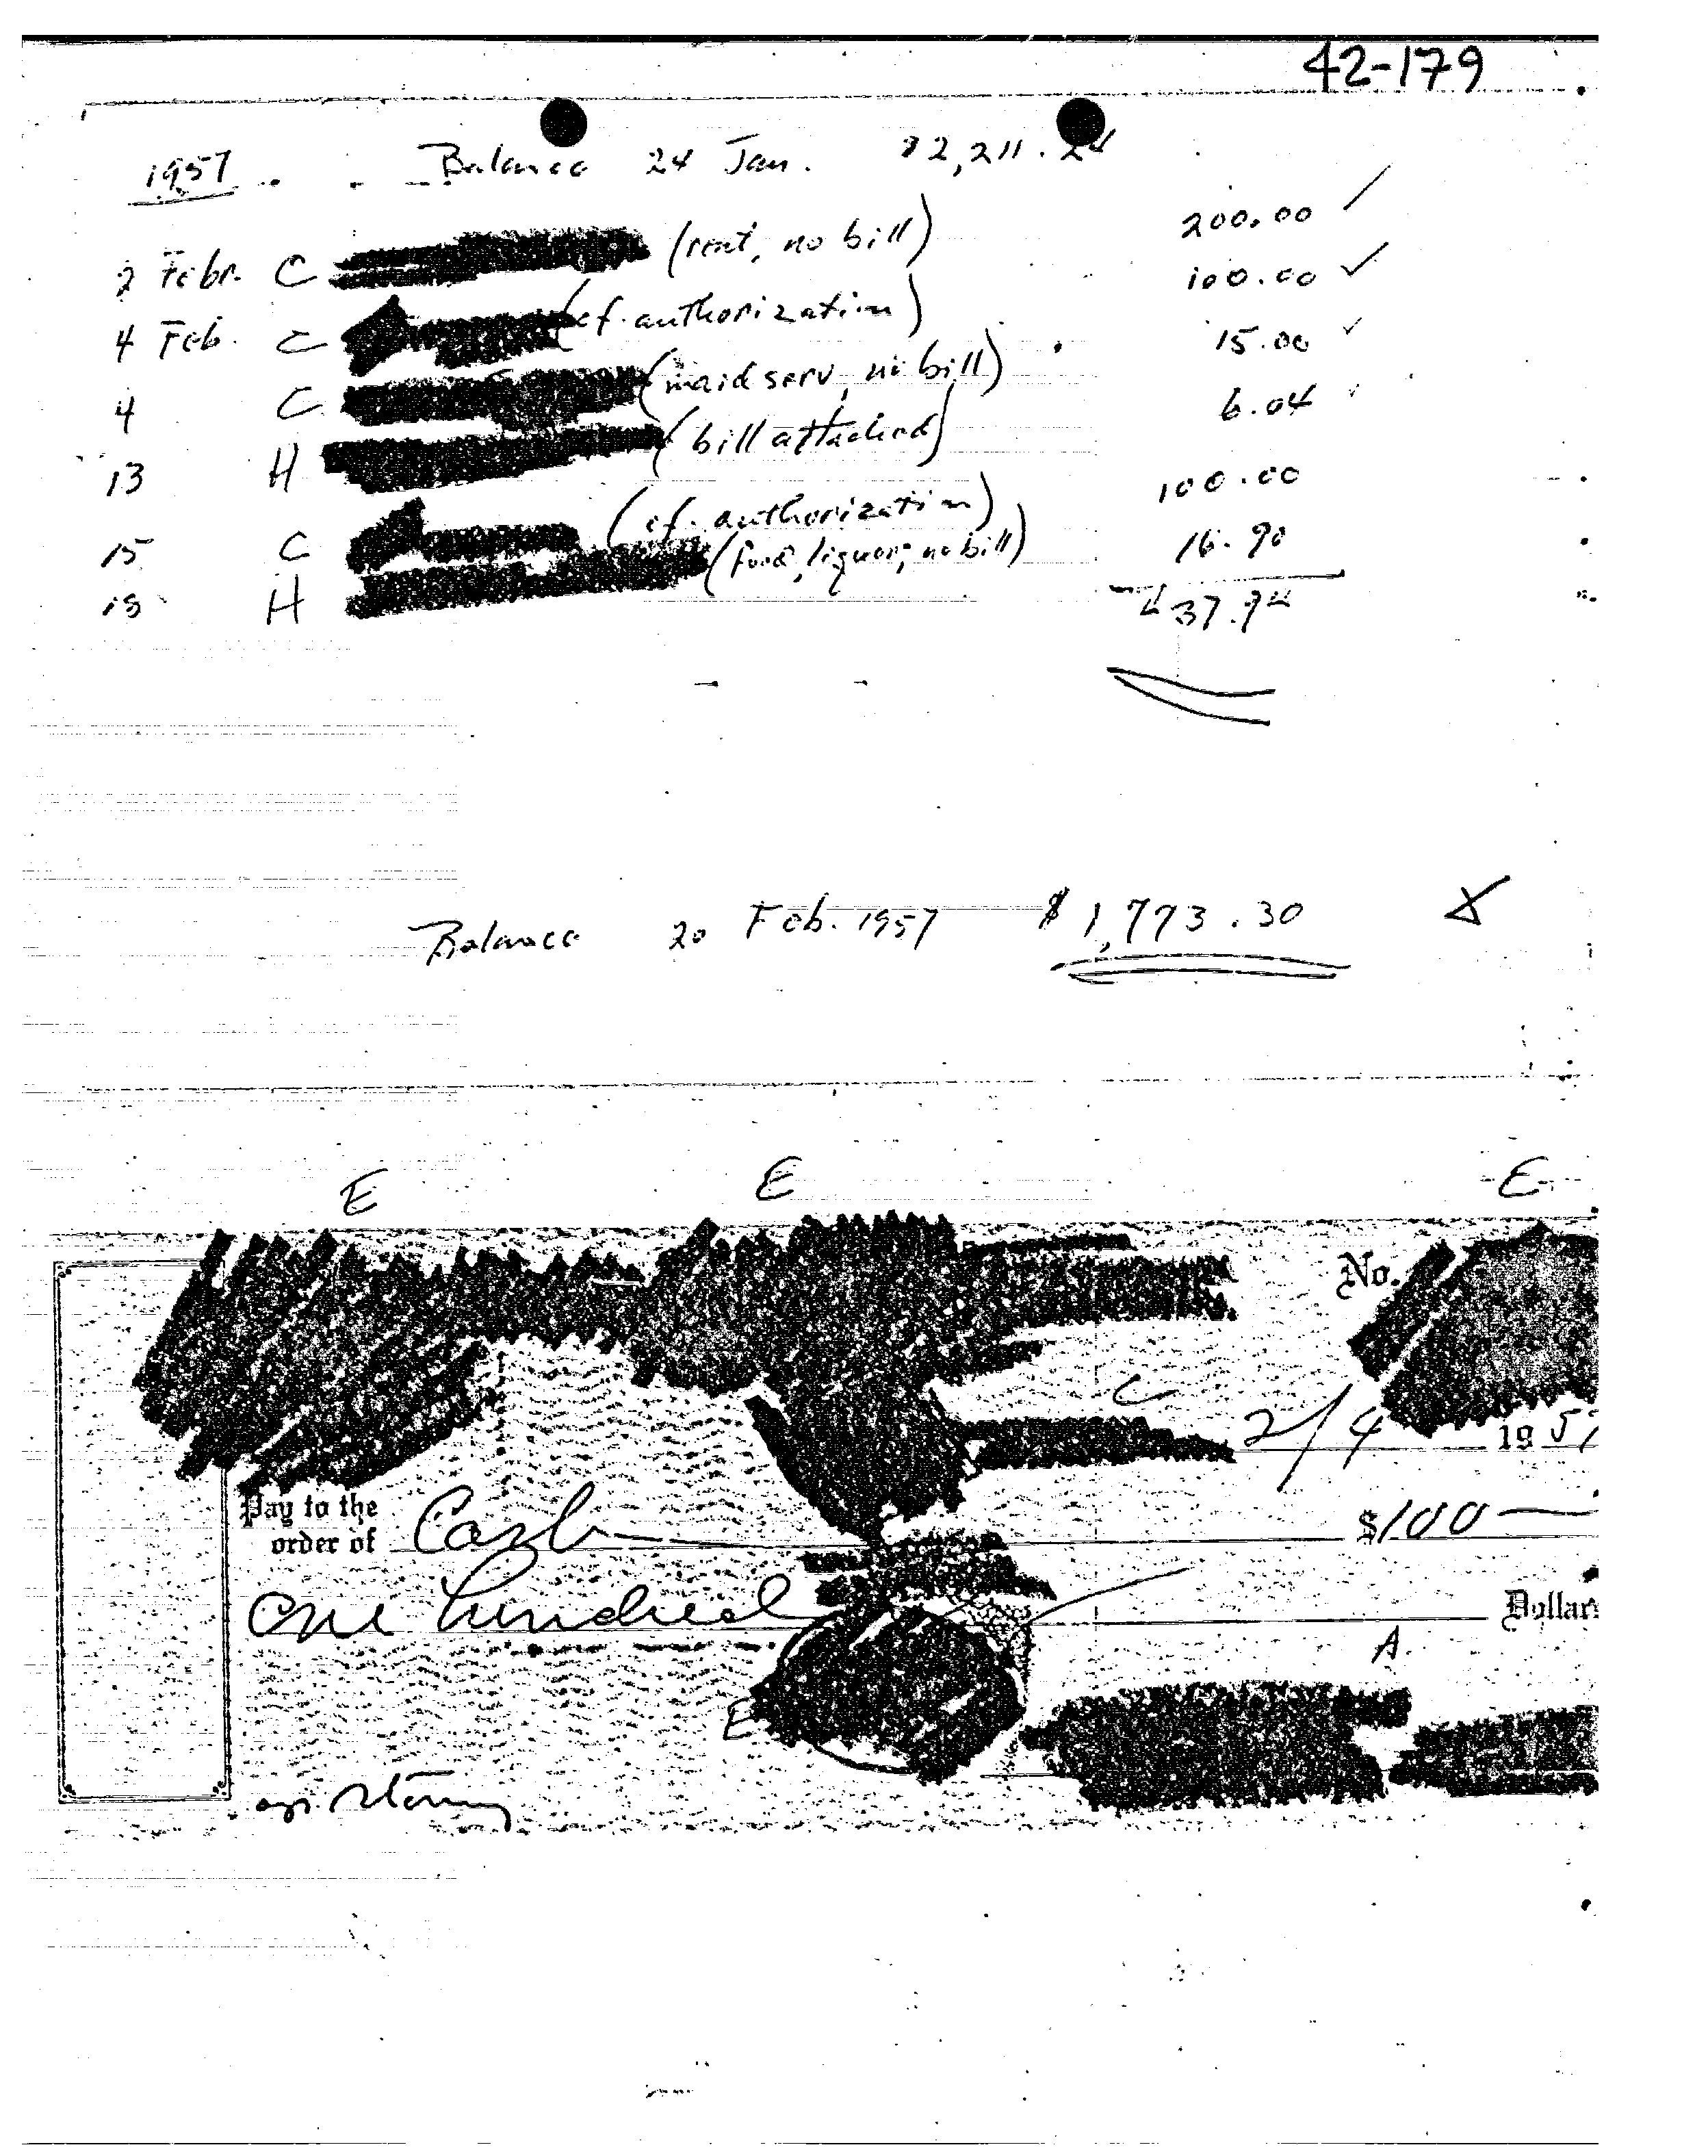 42-179
1957 Balance 24 Jan. $2,211.24
2 Febr. C (rent, no bill) 200.00 ✓
4 Feb. C (cf. authorization) 100.00 ✓
4 C (maid serv, no bill) 15.00 ✓
13 H (bill attached) 6.04 ✓
15 C (cf. authorization) 100.00
18 H (food, liquor; no bill) 16.90
437.94
Balance 20 Feb. 1957 $1,773.30
E E E
No.
C
2/4 1957
Pay to the
order of Cash $100
One hundred Dollars
A
E